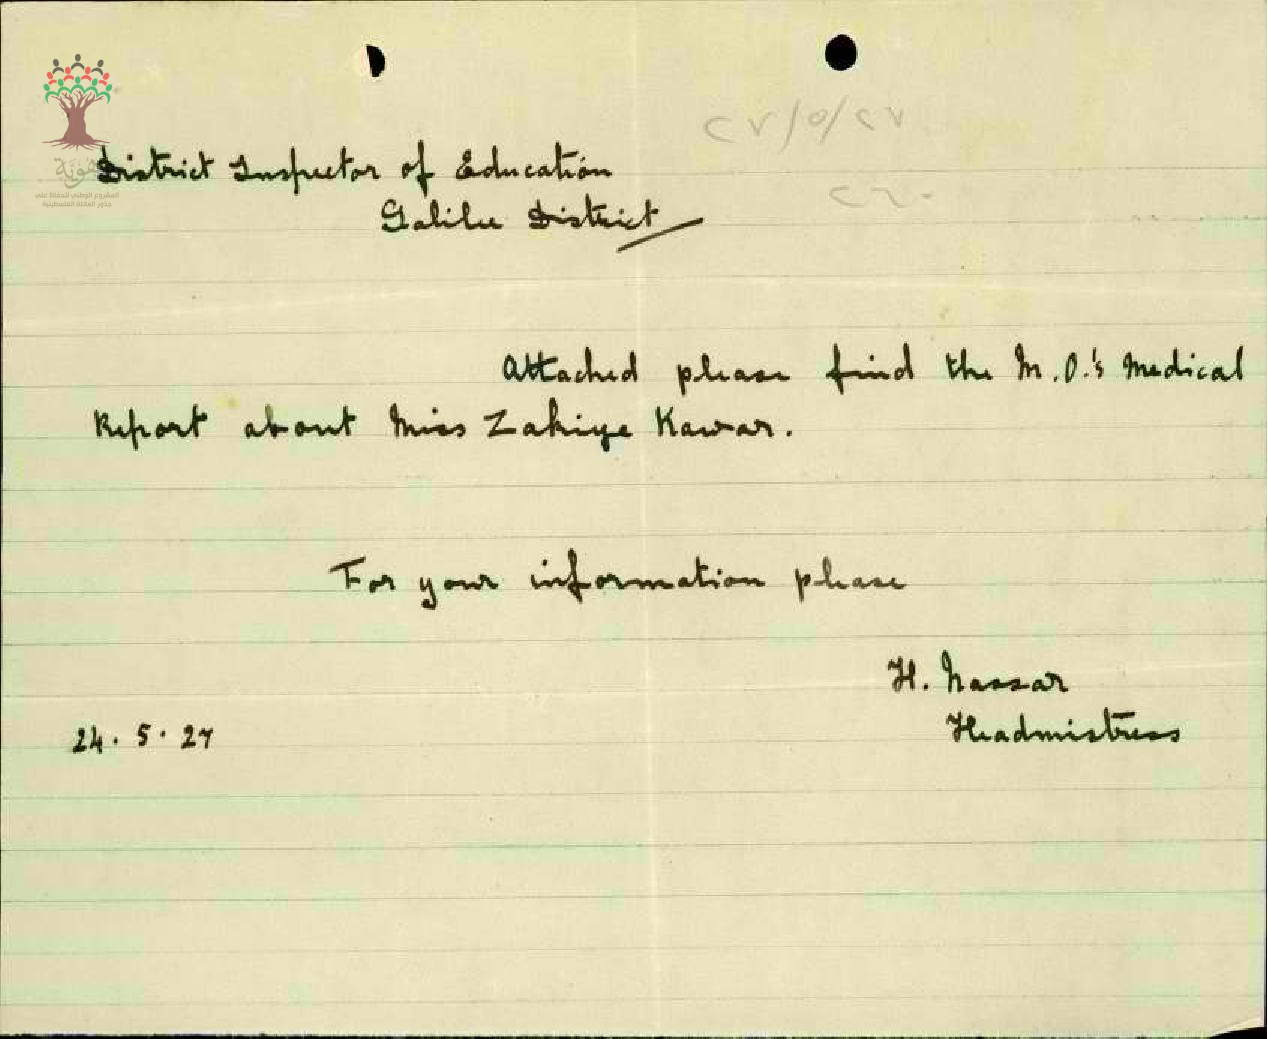 هوية
المشروع الوطني للحفاظ على
جذور العائلة الفلسطينية
٢٧/٥/٢٧
District Inspector of Education
Galilee District
Attached please find the M.O.'s Medical
Report about Miss Zakiye Kawar.
For your information please
H. Nassar
Headmistress
24. 5. 27